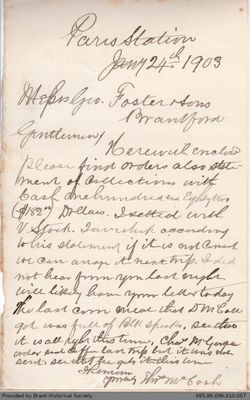 Paris Station
Jany 24th 1903
Messrs Geo. Foster & Sons
Brantford
Gentlemen
Herewith enclosed
Please find orders also state-
ment of Collections with
Cash one hundred & Eighty two
($182.00) Dollars. I settled with
V. Stock. Invoiced according
to his statement if it is not Correct
we can arrange it next trip. I did
not hear from you last night
will likely have your letter today
The last corn meal that D McColl
got was full of Blk specks, see that
it is all right this time, Chas McGeorge
order sent coffee last trip but it was not
sent. see that he gets it this time
I remain
yours Thos McCosh
Provided by Brant Historical Society
985.86.096.010.007